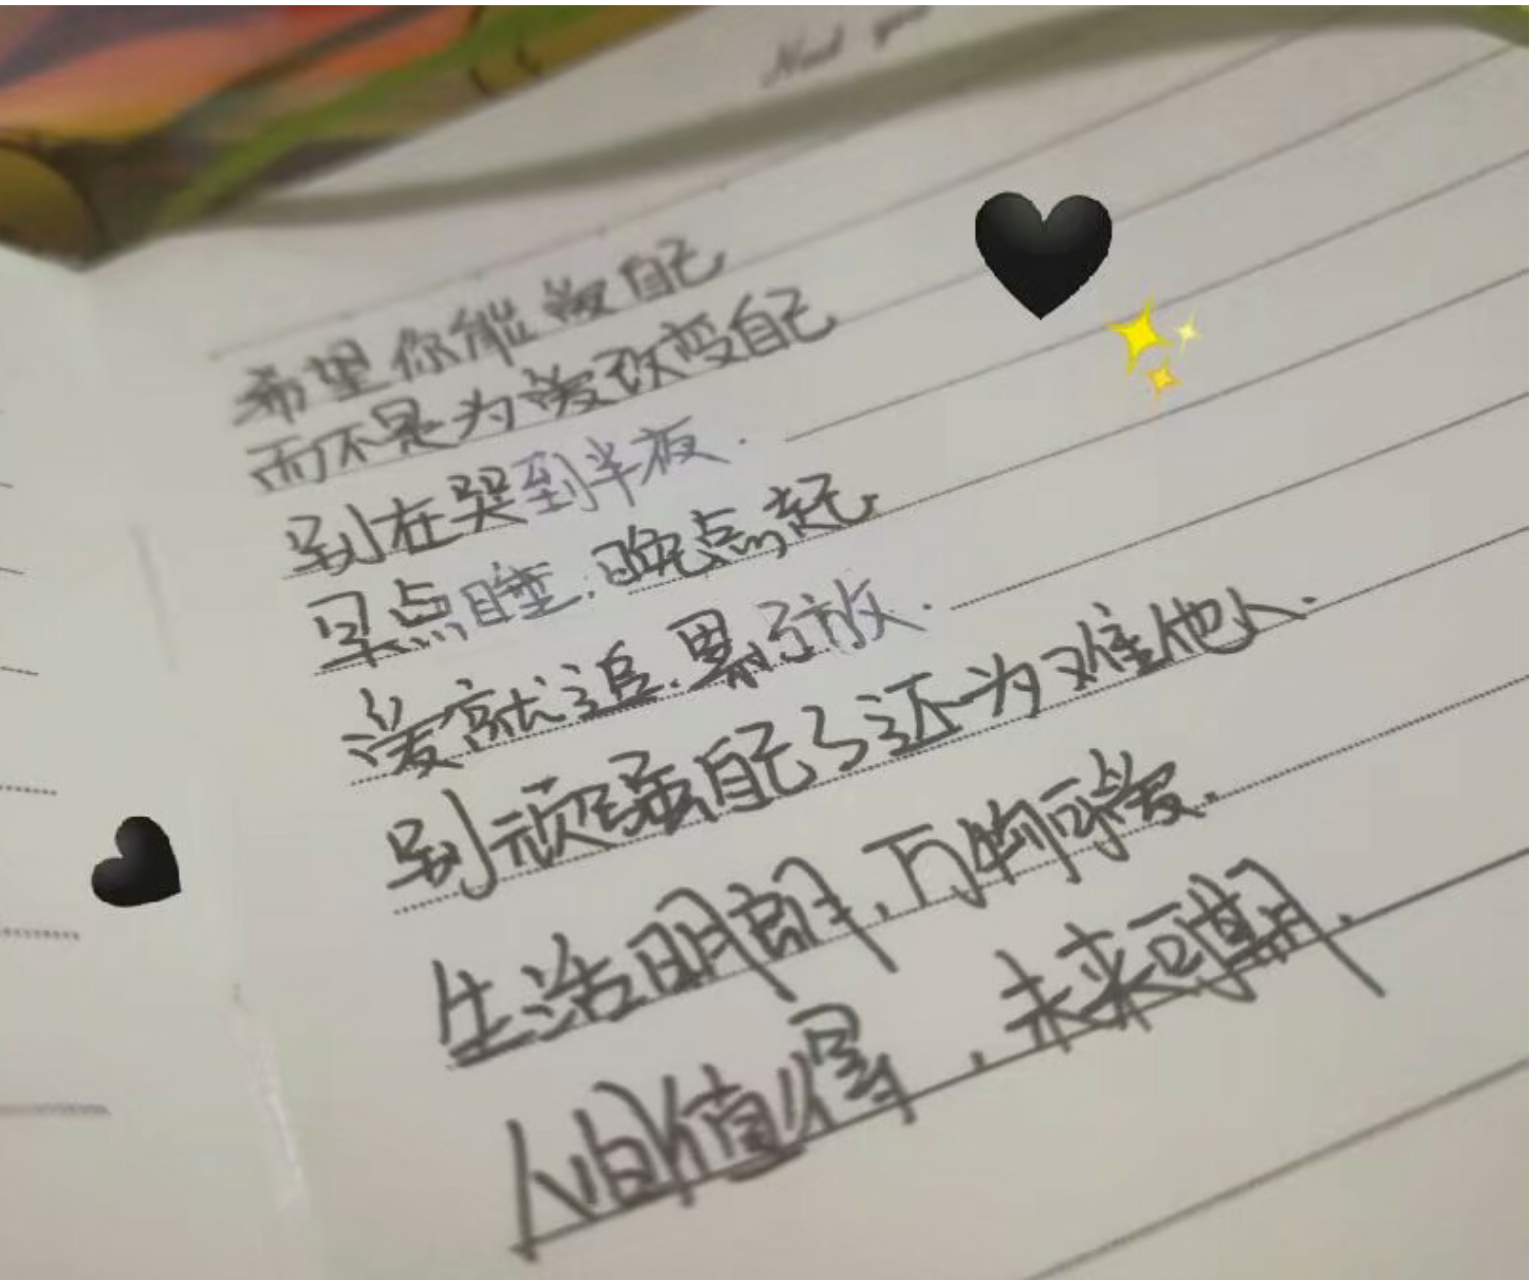 希望你能做自己
而不是为爱改变自己
别在哭到半夜.
早点睡.晚点起.
爱就追.累了放.
别顽强自己了还为难他人.
生活明朗,万物可爱.
人间值得,未来可期.